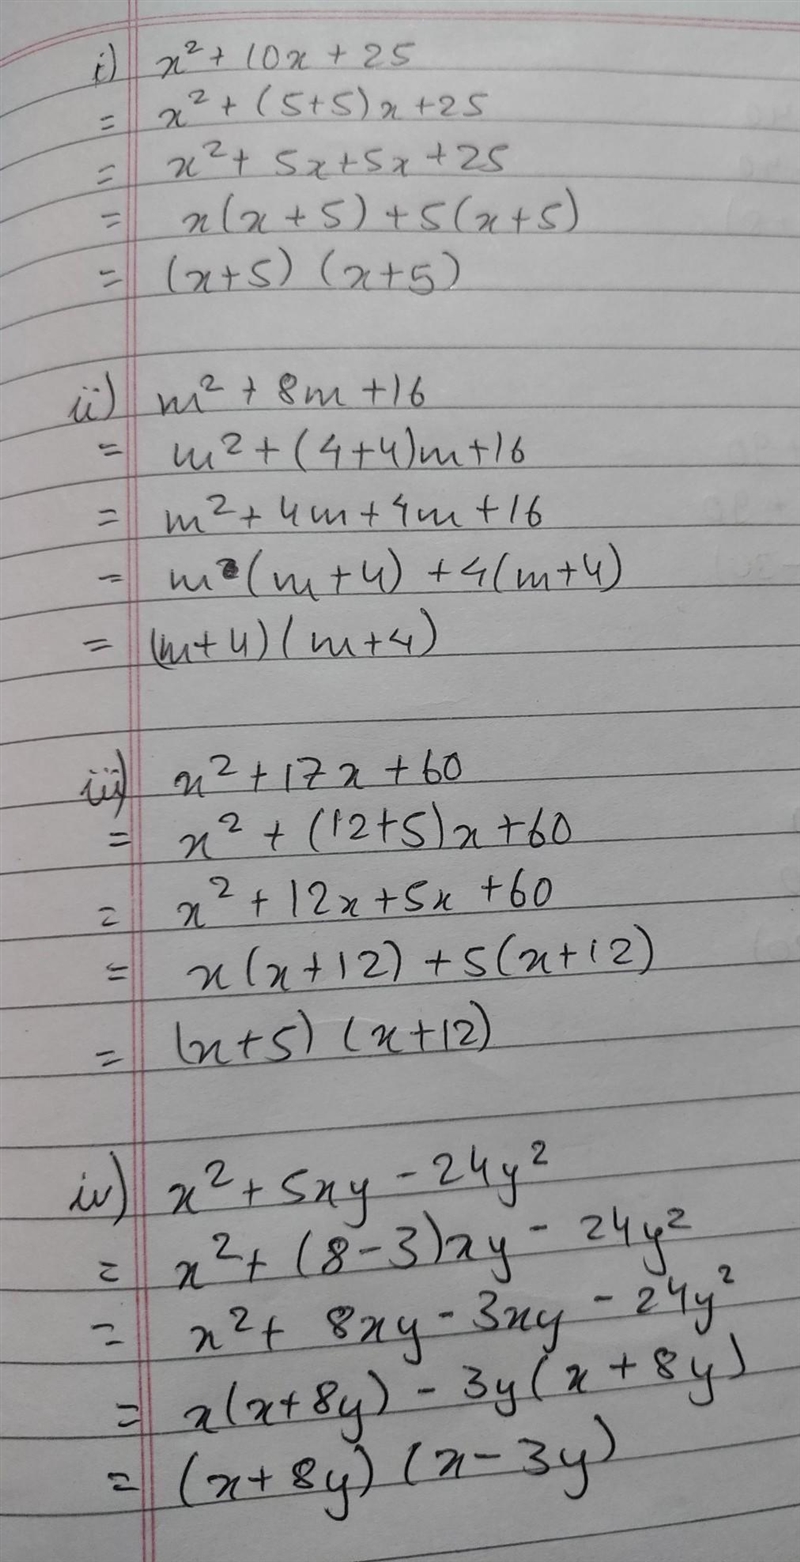 i) x² + 10x + 25
= x² + (5+5)x + 25
= x² + 5x + 5x + 25
= x(x + 5) + 5(x + 5)
= (x+5) (x+5)
ii) m² + 8m + 16
= m² + (4+4)m + 16
= m² + 4m + 4m + 16
= m (m + 4) + 4(m+4)
= (m+4) (m+4)
iii) x² + 17x + 60
= x² + (12+5)x + 60
= x² + 12x + 5x + 60
= x(x+12) + 5(x+12)
= (x+5) (x+12)
iv) x² + 5xy - 24y²
= x² + (8-3)xy - 24y²
= x² + 8xy - 3xy - 24y²
= x(x+8y) - 3y(x + 8y)
= (x+8y) (x-3y)